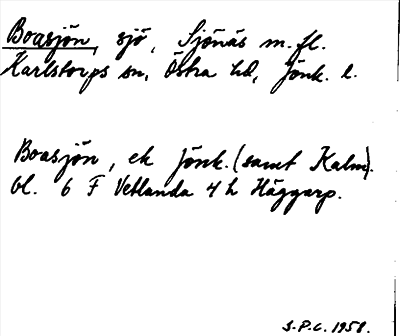 Boasjön, sjö, Sjönäs m. fl.
Karlstorps sn, Östra hd, Jönk. l.
Boasjön, ek Jönk. (samt Kalm).
bl. 6 F Vetlanda 4 h Häggarp.
S.P.C. 1958.